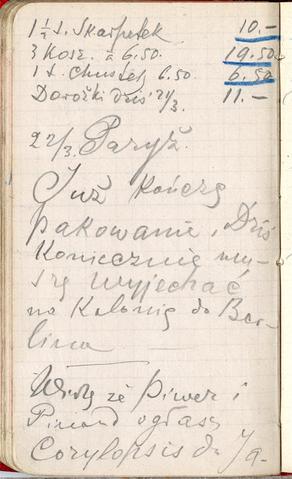 1½ t. Skarpetek 10.-
3 Kosz. à 6.50. 19.50
1 t. Chustek 6.50. 6.50
Dorożki dziś 21/3. 11.-
22/3. Paryż.
Już kończę
pakowanie. Dziś
Koniecznie mu-
szę wyjechać
na Kolonię do Ber-
lina
Widzę że Piwer i
Pinaud ogłasz
Corylopsis du Ja-